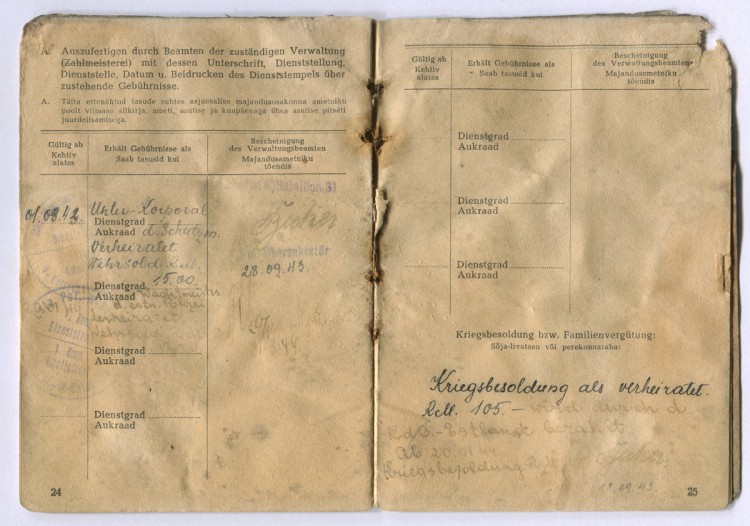 A. Auszufertigen durch Beamten der zuständigen Verwaltung
(Zahlmeisterei) mit dessen Unterschrift, Dienststellung,
Dienststelle, Datum u. Beidrucken des Dienststempels über
zustehende Gebührnisse.
A. Täita ettenähtud tasude suhtes asjaomase majandusosakonna ametniku
poolt viimase allkirja, ameti, asutise ja kuupäevaga ühes asutise pitsati
juurdelisamisega.
Gültig ab
Kehtiv
alates
Erhält Gebührnisse als
Saab tasusid kui
Bescheinigung
des Verwaltungsbeamten
Majandusametniku
tõendis
Bataillon 31
01.09.42 Unter-Korporal
Dienstgrad
Aukraad d. Schutzm.
Verheiratet
Wehrsold R.M.
28.09.43.
Dienstgrad 15.00
Aukraad Wachtmeister
d. estn. Polizei
Verheiratet
Wehrsold
Dienstgrad
Aukraad
Dienstgrad
Aukraad
24
Gültig ab
Kehtiv
alates
Erhält Gebührnisse als
Saab tasusid kui
Bescheinigung
des Verwaltungsbeamten
Majandusametniku
tõendis
Dienstgrad
Aukraad
Dienstgrad
Aukraad
Dienstgrad
Aukraad
Kriegsbesoldung bzw. Familienvergütung:
Sõja-livatasu või perekonnaraha:
Kriegsbesoldung als verheiratet.
R.M. 105.– wird durch d.
KdO.-Estland bezahlt.
Ab 20.01.44
Kriegsbesoldung
25